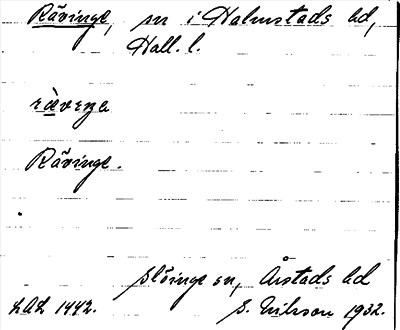 Rävinge, sn i Halmstads hd,
Hall. l.
rävɛŋa
Rävinge.
Slöinge sn, Årstads hd
LAL 1442. S. Nilsson 1932.